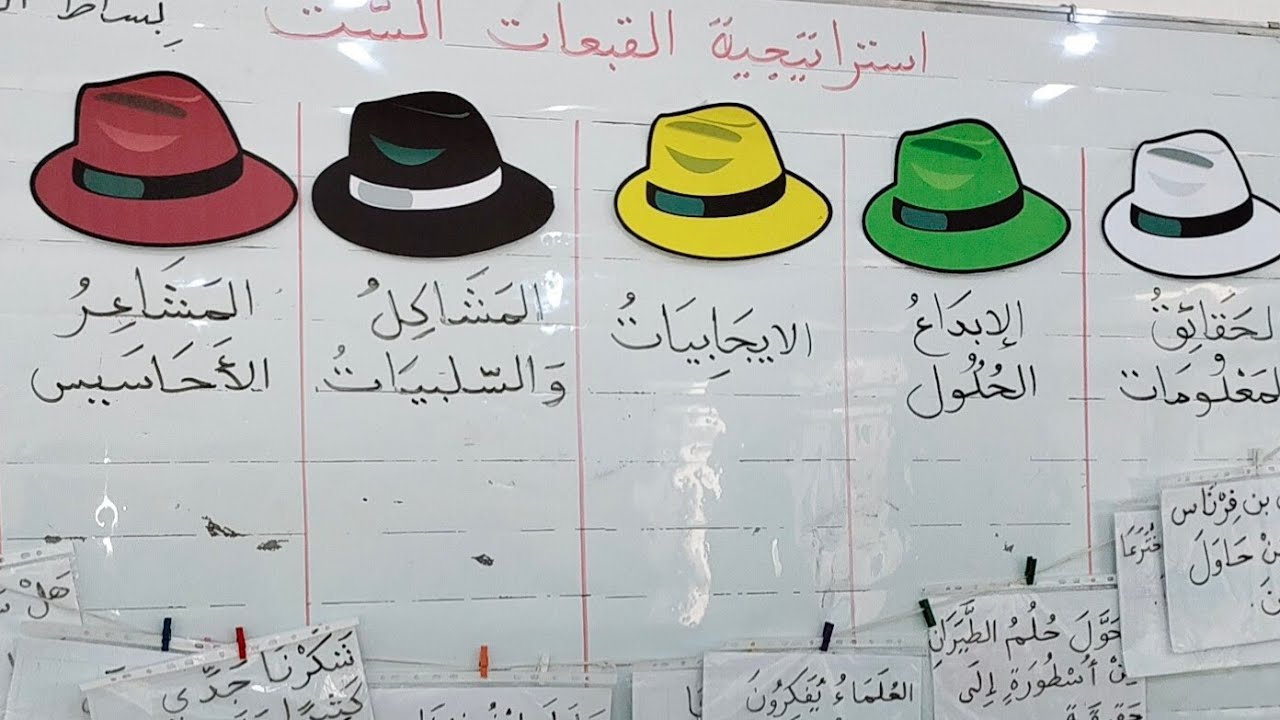 استراتيجية القبعات السّت
بِساط
لحَقَائِقُ
لمَعْلُومَات
الإبْدَاعُ
الحُلُول
الايجَابِيَاتُ
المَشَاكِلُ
وَالسّلبيَاتُ
المَشَاعِرُ
الأَحَاسَيِس
بن فِرْنَاس
حَاوَلَ
حُلمُ الطَّيَرَانِ
أُسْطُورَةٍ إِلَى
العُلَمَاءُ يُفَكِرُونَ
شَكَرْنَا جَدِّي
هَلْ